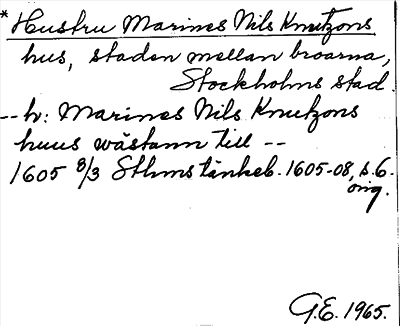 * Hustru Marines Nils Knutzons
hus, staden mellan broarna,
Stockholms stad.
-- h: Marines Nils Knutzons
huus wästann till --
1605 8/3 Sthms tänkeb. 1605-08, s. 6.
orig.
G.E. 1965.